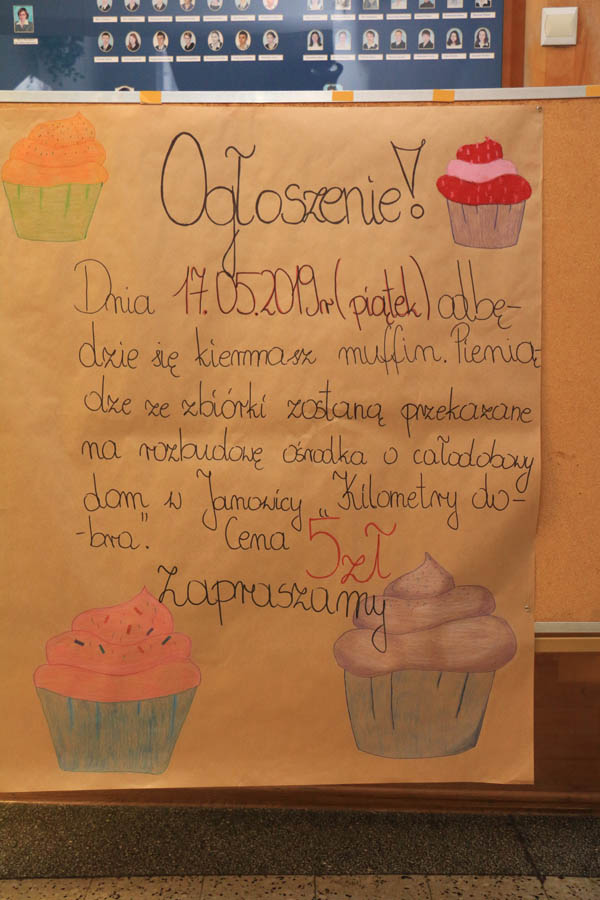 Ogłoszenie!
Dnia 17.05.2019r (piątek) odbę-
dzie się kiermasz muffin. Pienią-
dze ze zbiórki zostaną przekazane
na rozbudowę ośrodka o całodobowy
dom w Janowicy „Kilometry do-
-bra”. Cena 5zł
Zapraszamy